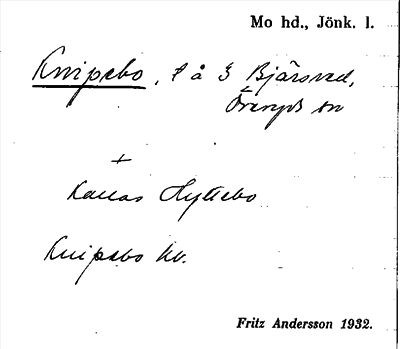 Mo hd., Jönk. l.
Knipsbo, t å Bjärsved,
Öreryds sn
+
Kallas Hyltebo
Knipsbo kb.
Fritz Andersson 1932.